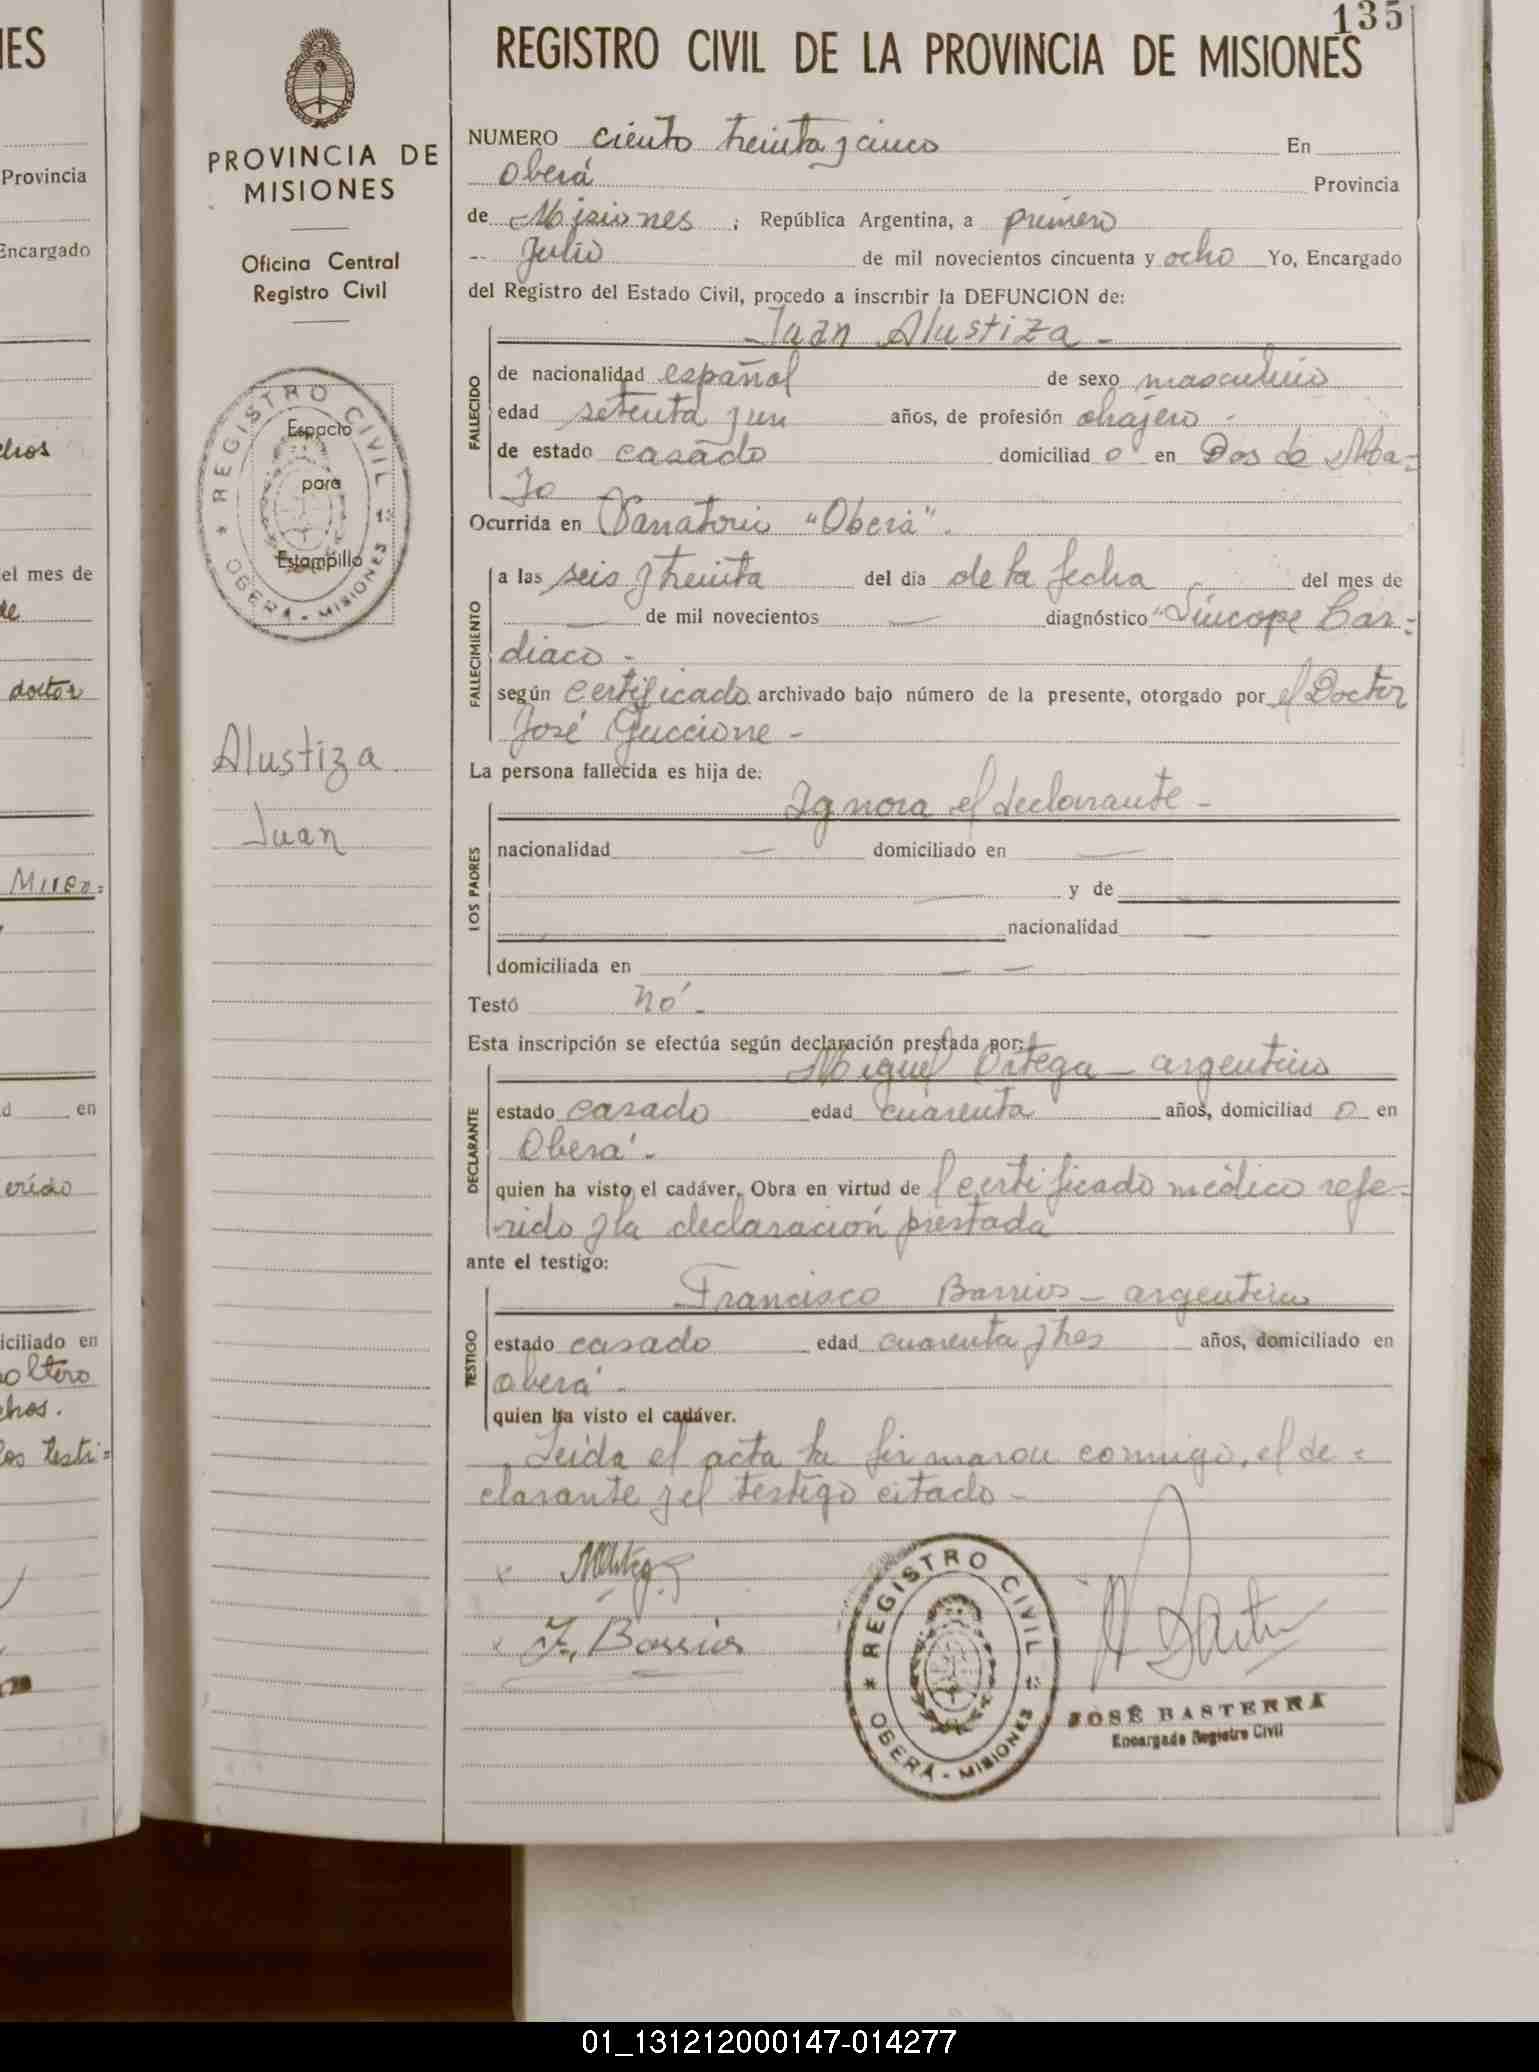 135
REGISTRO CIVIL DE LA PROVINCIA DE MISIONES
PROVINCIA DE
MISIONES
Oficina Central
Registro Civil
REGISTRO CIVIL
Espacio
para
Estampilla
OBERÁ - MISIONES
Alustiza
Juan
NUMERO ciento treinta y cinco En
Oberá Provincia
de Misiones ; República Argentina, a primero
Julio de mil novecientos cincuenta y ocho Yo, Encargado
del Registro del Estado Civil, procedo a inscribir la DEFUNCION de:
Juan Alustiza -
FALLECIDO
de nacionalidad español de sexo masculino
edad setenta y un años, de profesión
de estado casado domiciliad o en Dos de Ma-
yo
Ocurrida en Sanatorio "Oberá".
FALLECIMIENTO
a las seis y treinta del dia de la fecha del mes de
— de mil novecientos — diagnóstico "Síncope Car-
diaco -
según certificado archivado bajo número de la presente, otorgado por el Doctor
José Guccione -
La persona fallecida es hija de:
Ignora el declarante -
LOS PADRES
nacionalidad — domiciliado en —
— y de
nacionalidad —
domiciliada en — —
Testó nó -
Esta inscripción se efectúa según declaración prestada por:
Miguel Ortega - argentino
DECLARANTE
estado casado edad cuarenta años, domiciliad o en
Oberá -
quien ha visto el cadáver. Obra en virtud de l certificado médico refe-
rido y la declaración prestada
ante el testigo:
Francisco Barrios - argentino
TESTIGO
estado casado edad cuarenta y tres años, domiciliado en
Oberá -
quien ha visto el cadáver.
Leída el acta la firmaron conmigo, el de-
clarante y el testigo citado -
F. Barrios
REGISTRO CIVIL
OBERÁ - MISIONES
JOSÉ BASTERRA
Encargado Registro Civil
NES
Provincia
Encargado
chos
el mes de
de
doctor
d en
erido
iciliado en
soltero
chos.
los testi=
01_131212000147-014277